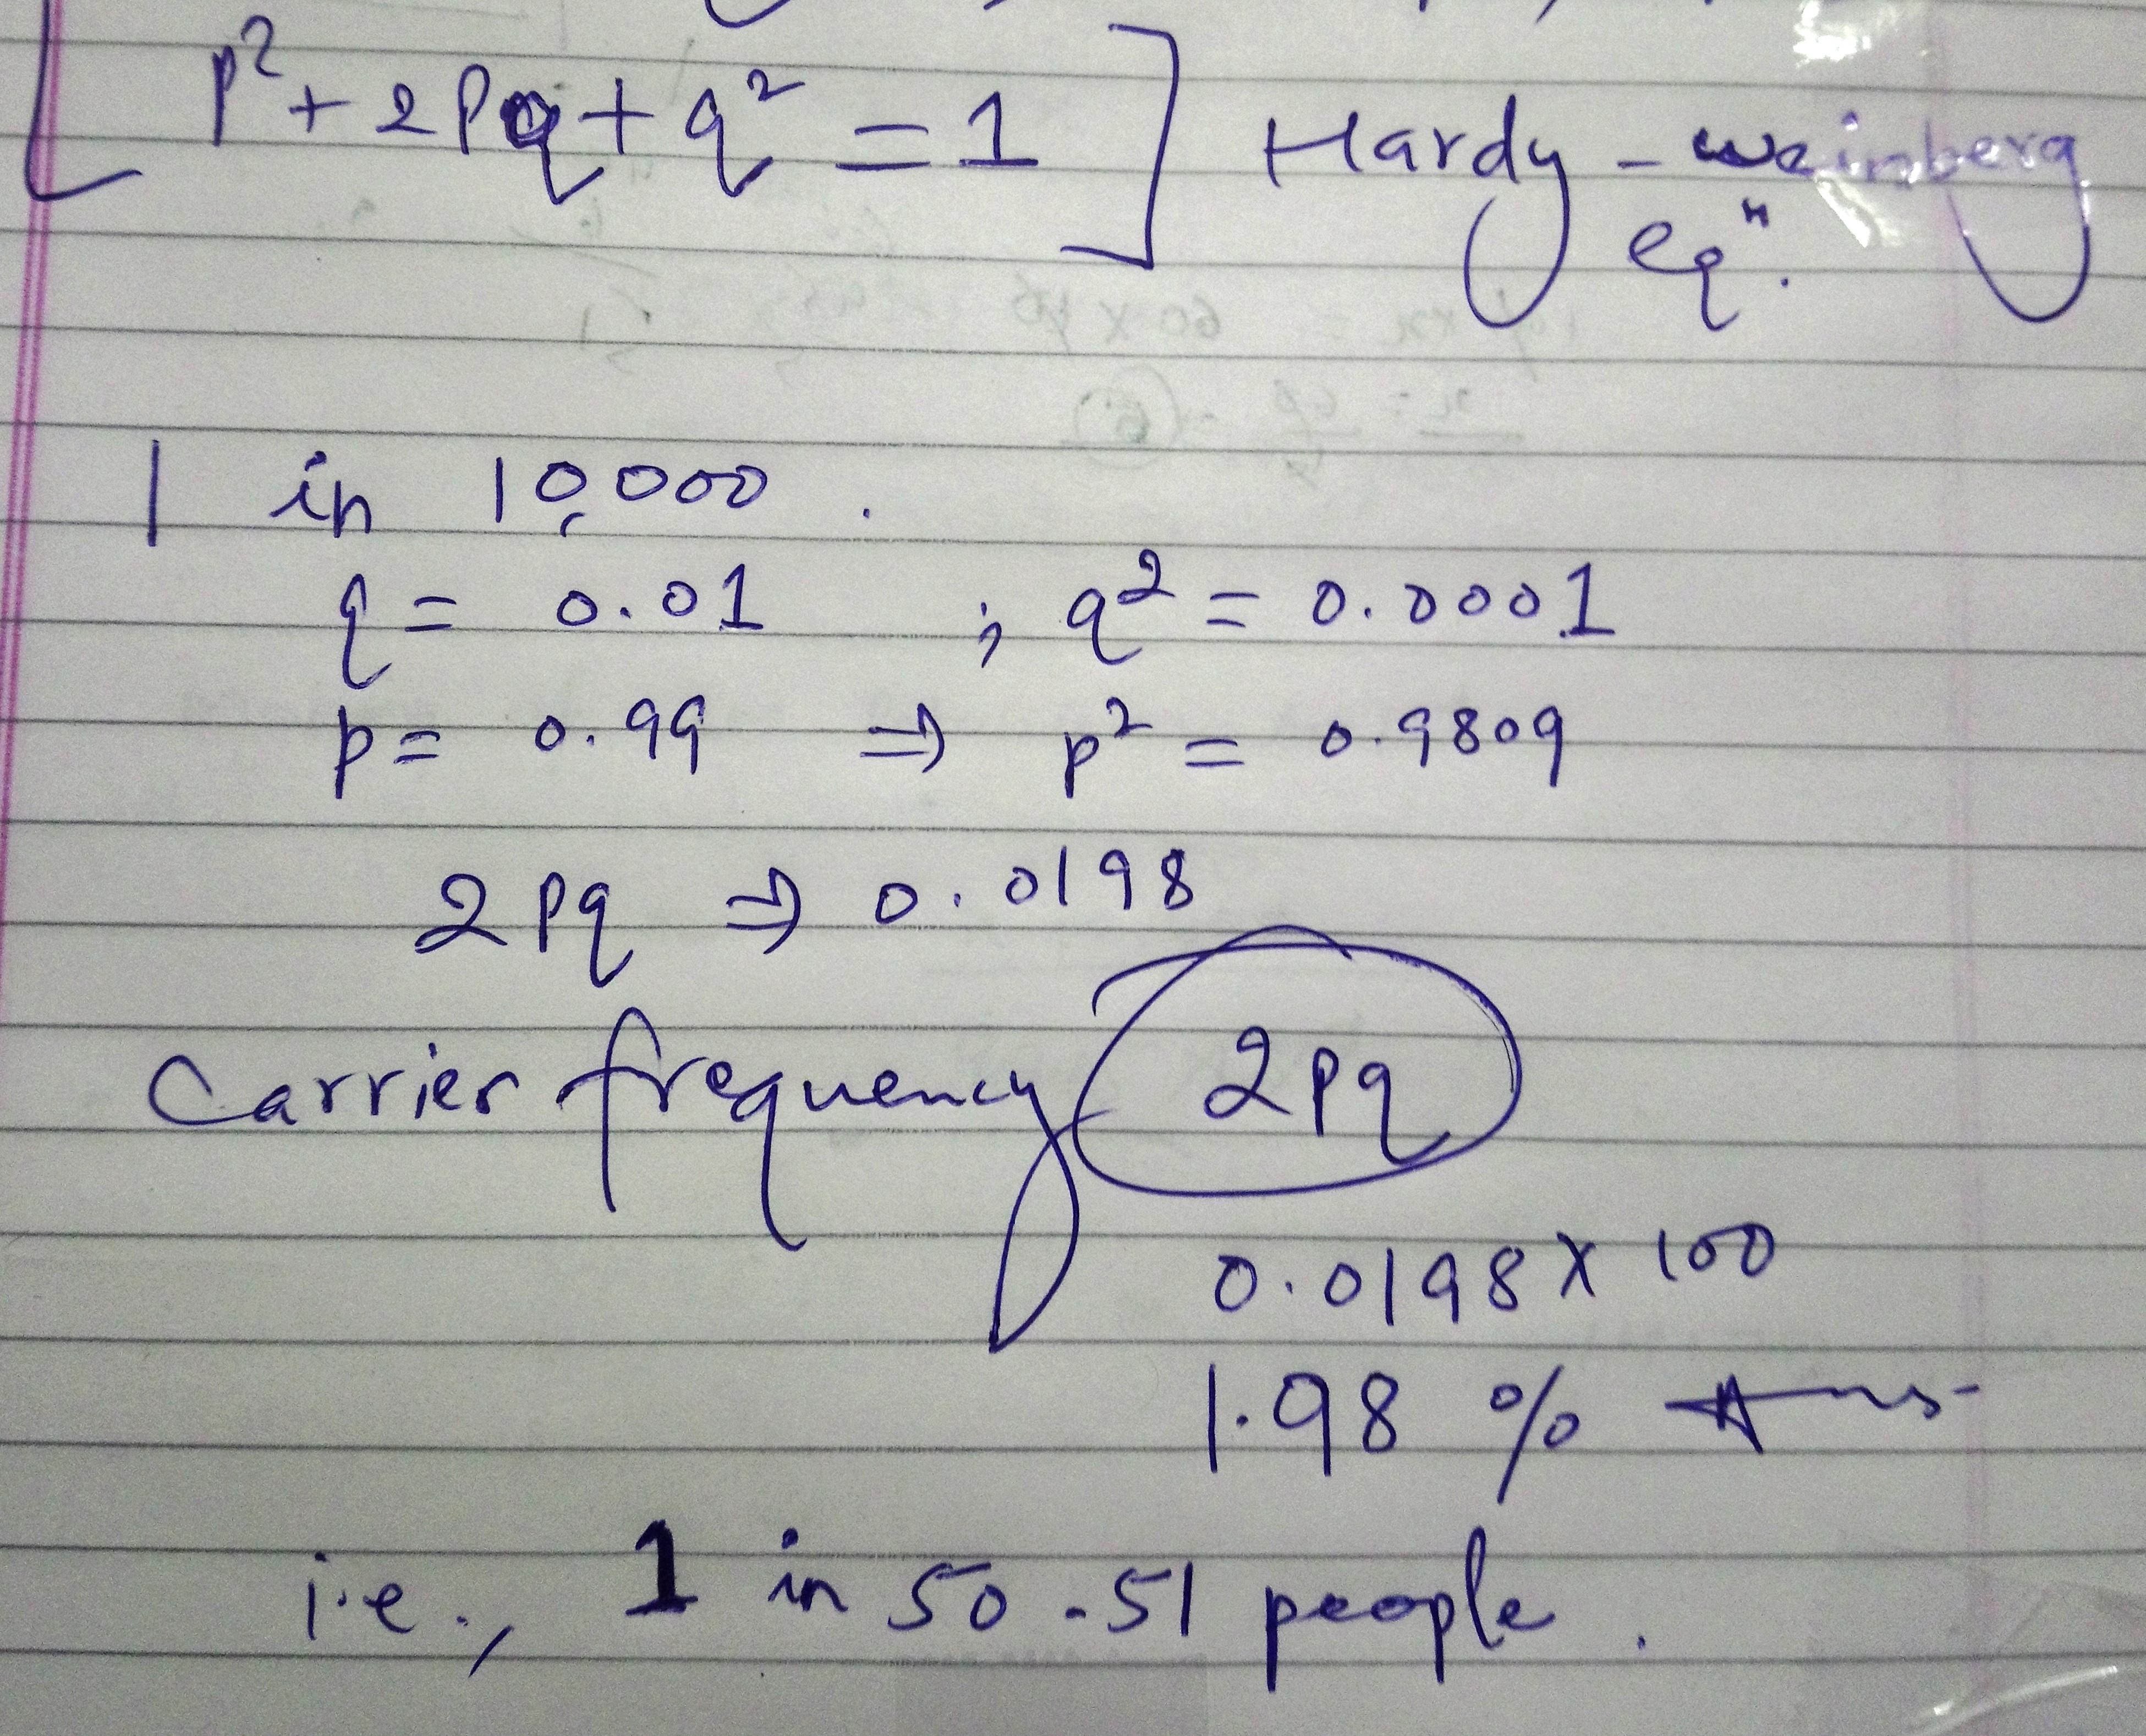 p² + 2pq + q² = 1 ] Hardy - weinberg
eqⁿ.
1 in 10,000 .
q = 0.01 ; q² = 0.0001
p = 0.99 ⇒ p² = 0.9809
2pq ⇒ 0.0198
Carrier frequency 2pq
0.0198 x 100
1.98 % Ans
i.e., 1 in 50 - 51 people .